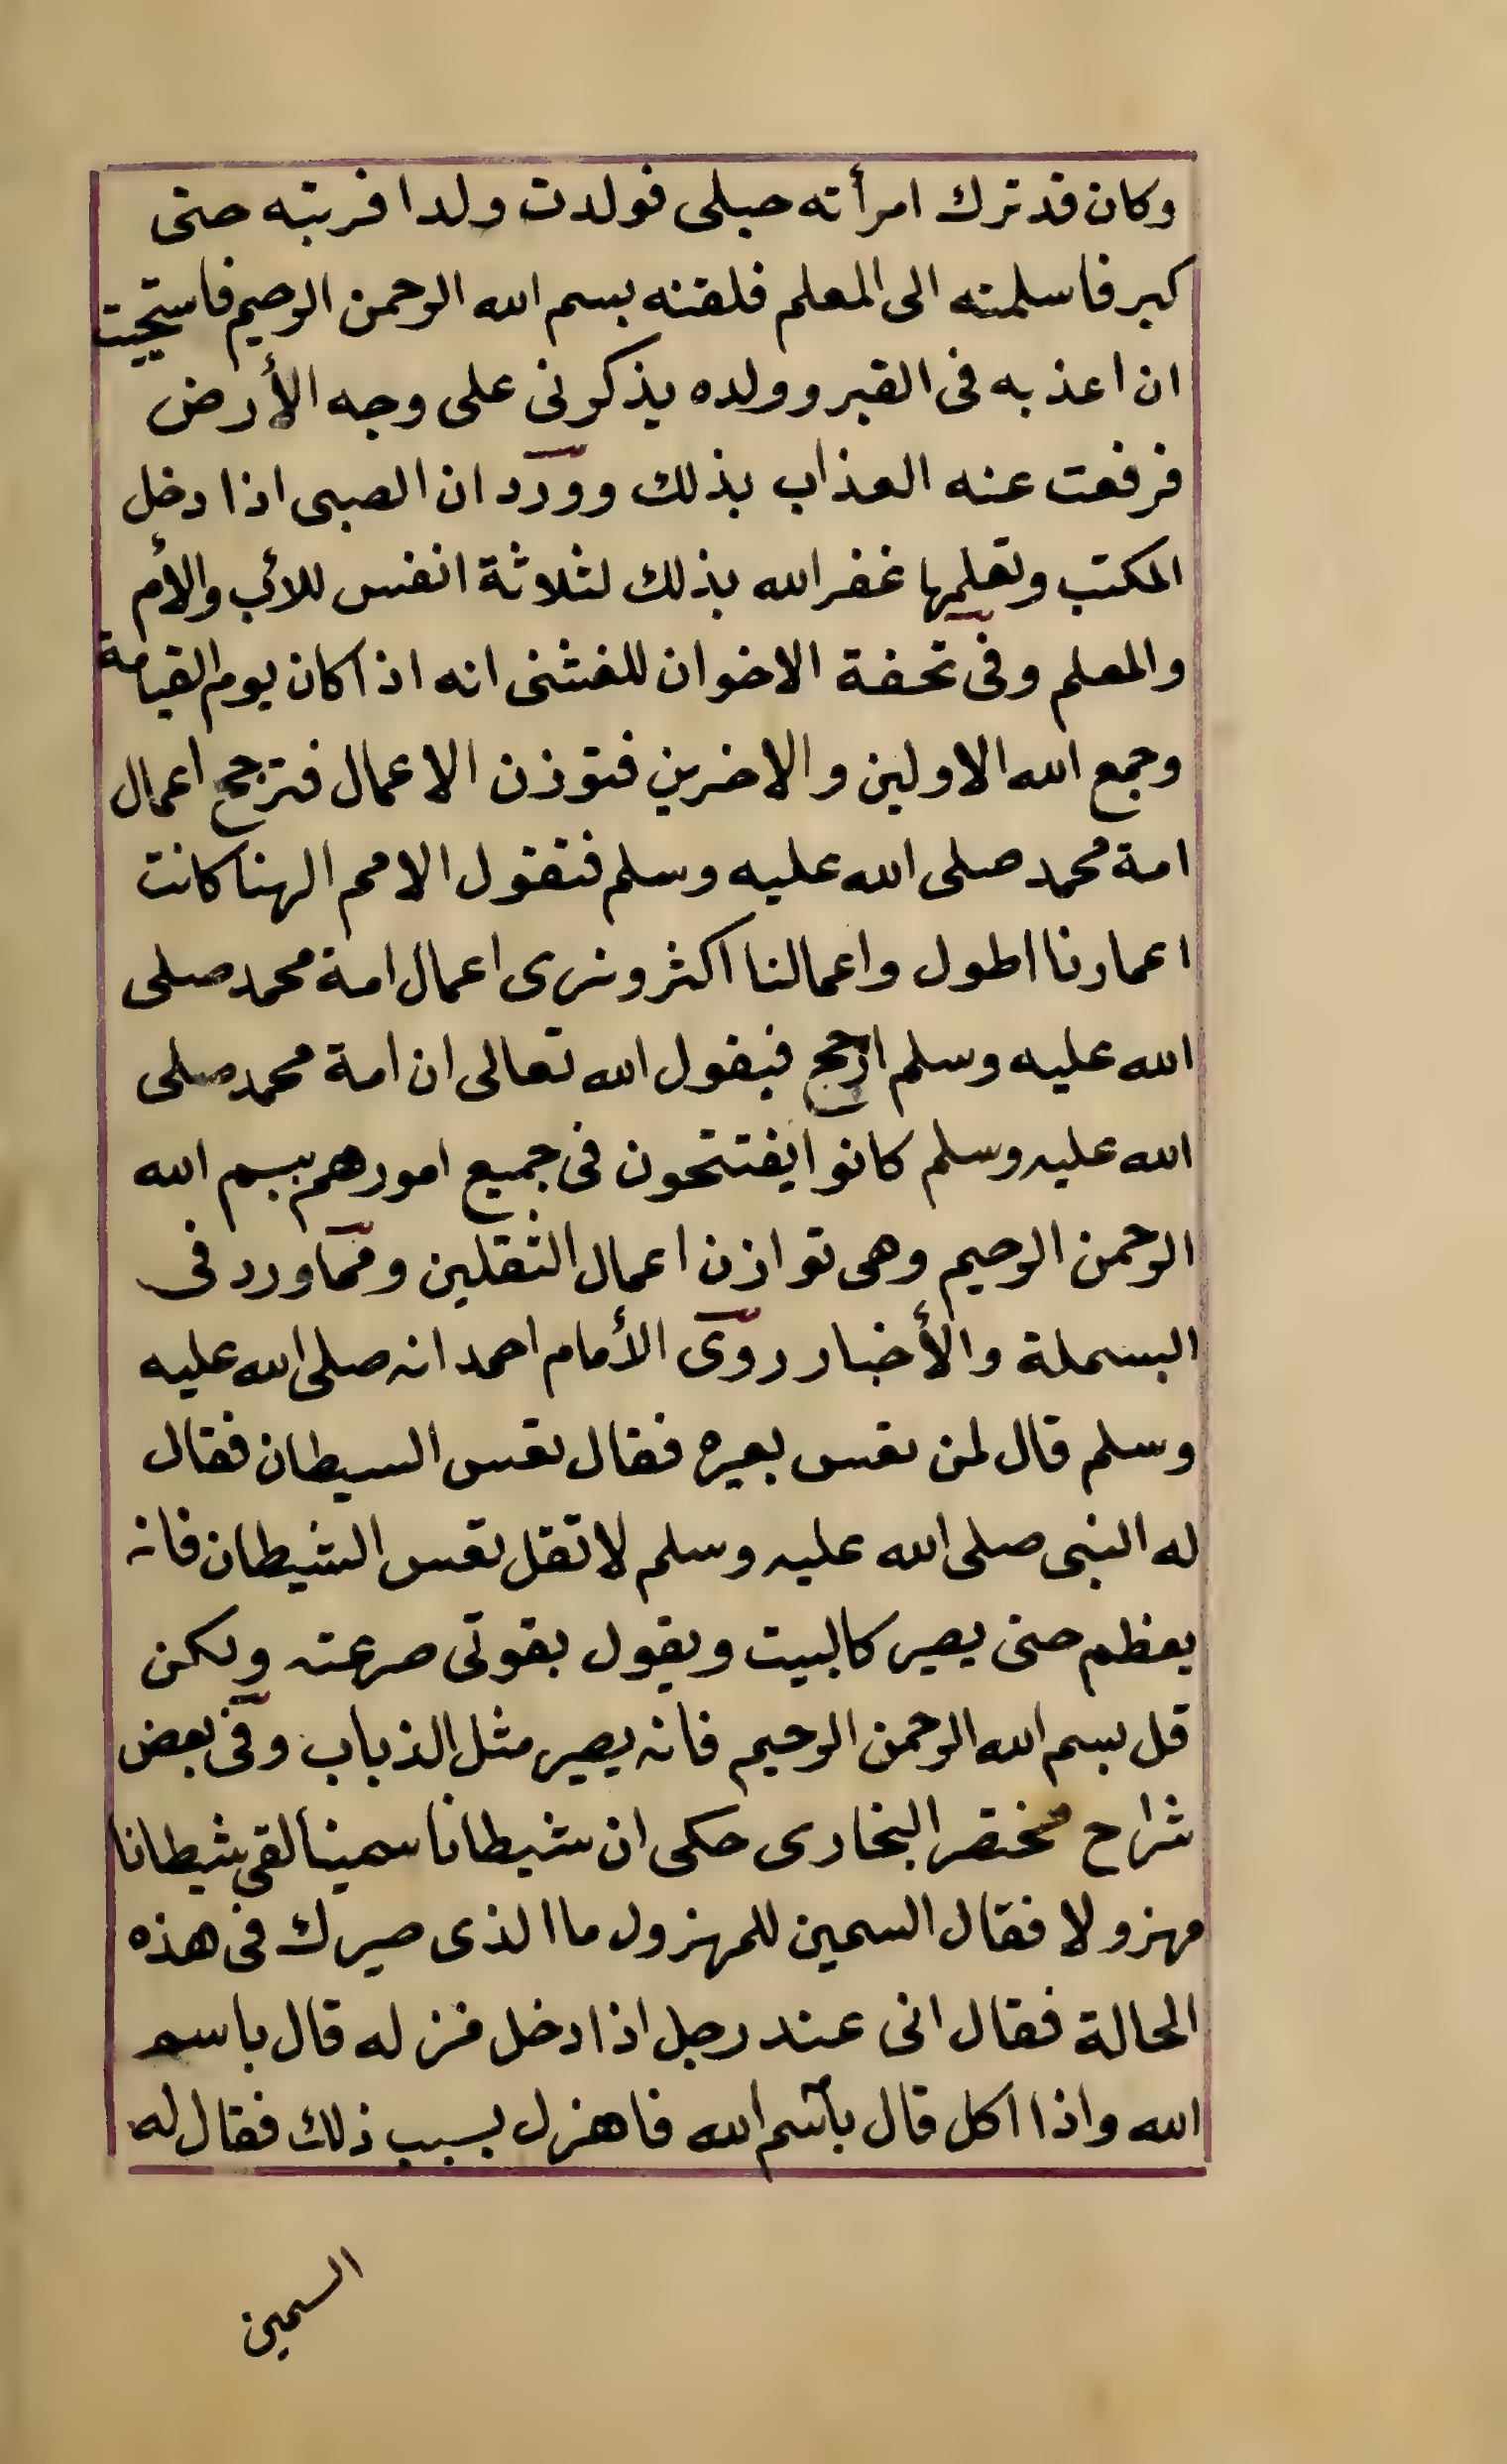 وكان قد ترك امرأته حبلى فولدت ولدا فربته حتى
كبر فاسلمته الى المعلم فلقنه بسم الله الرحمن الرحيم فاستحيت
ان اعذبه فى القبر وولده يذكرنى على وجه الأرض
فرفعت عنه العذاب بذلك وورد ان الصبى اذا دخل
المكتب وتعلمها غفر الله بذلك لثلاثة انفس للائب والأم
والمعلم وفى تحفة الاخوان للفشنى انه اذا كان يوم القيامة
وجمع الله الاولين والاخرين فتوزن الاعمال فترجح اعمال
امة محمد صلى الله عليه وسلم فتقول الامم الهنا كانت
اعمارنا اطول واعمالنا اكثر ونرى اعمال امة محمد صلى
الله عليه وسلم ارجح فيقول الله تعالى ان امة محمد صلى
الله عليه وسلم كانوا يفتتحون فى جميع امورهم ببسم الله
الرحمن الرحيم وهى توازن اعمال الثقلين ومما ورد فى
البسملة والأخبار روى الأمام احمد انه صلى الله عليه
وسلم قال لمن تعس بعيره فقال تعس السيطان فقال
له النبى صلى الله عليه وسلم لا تقل تعس الشيطان فانه
يعظم حتى يصير كالبيت ويقول بقوتى صرعته ولكن
قل بسم الله الرحمن الرحيم فانه يصير مثل الذباب وفى بعض
شراح مختصر البخارى حكى ان شيطانا سمينا لقى شيطانا
مهزولا فقال السمين للمهزول ما الذى صيرك فى هذه
الحالة فقال انى عند رجل اذا دخل منزله قال باسم
الله واذا اكل قال باسم الله فاهزل بسبب ذلك فقال له
السمين